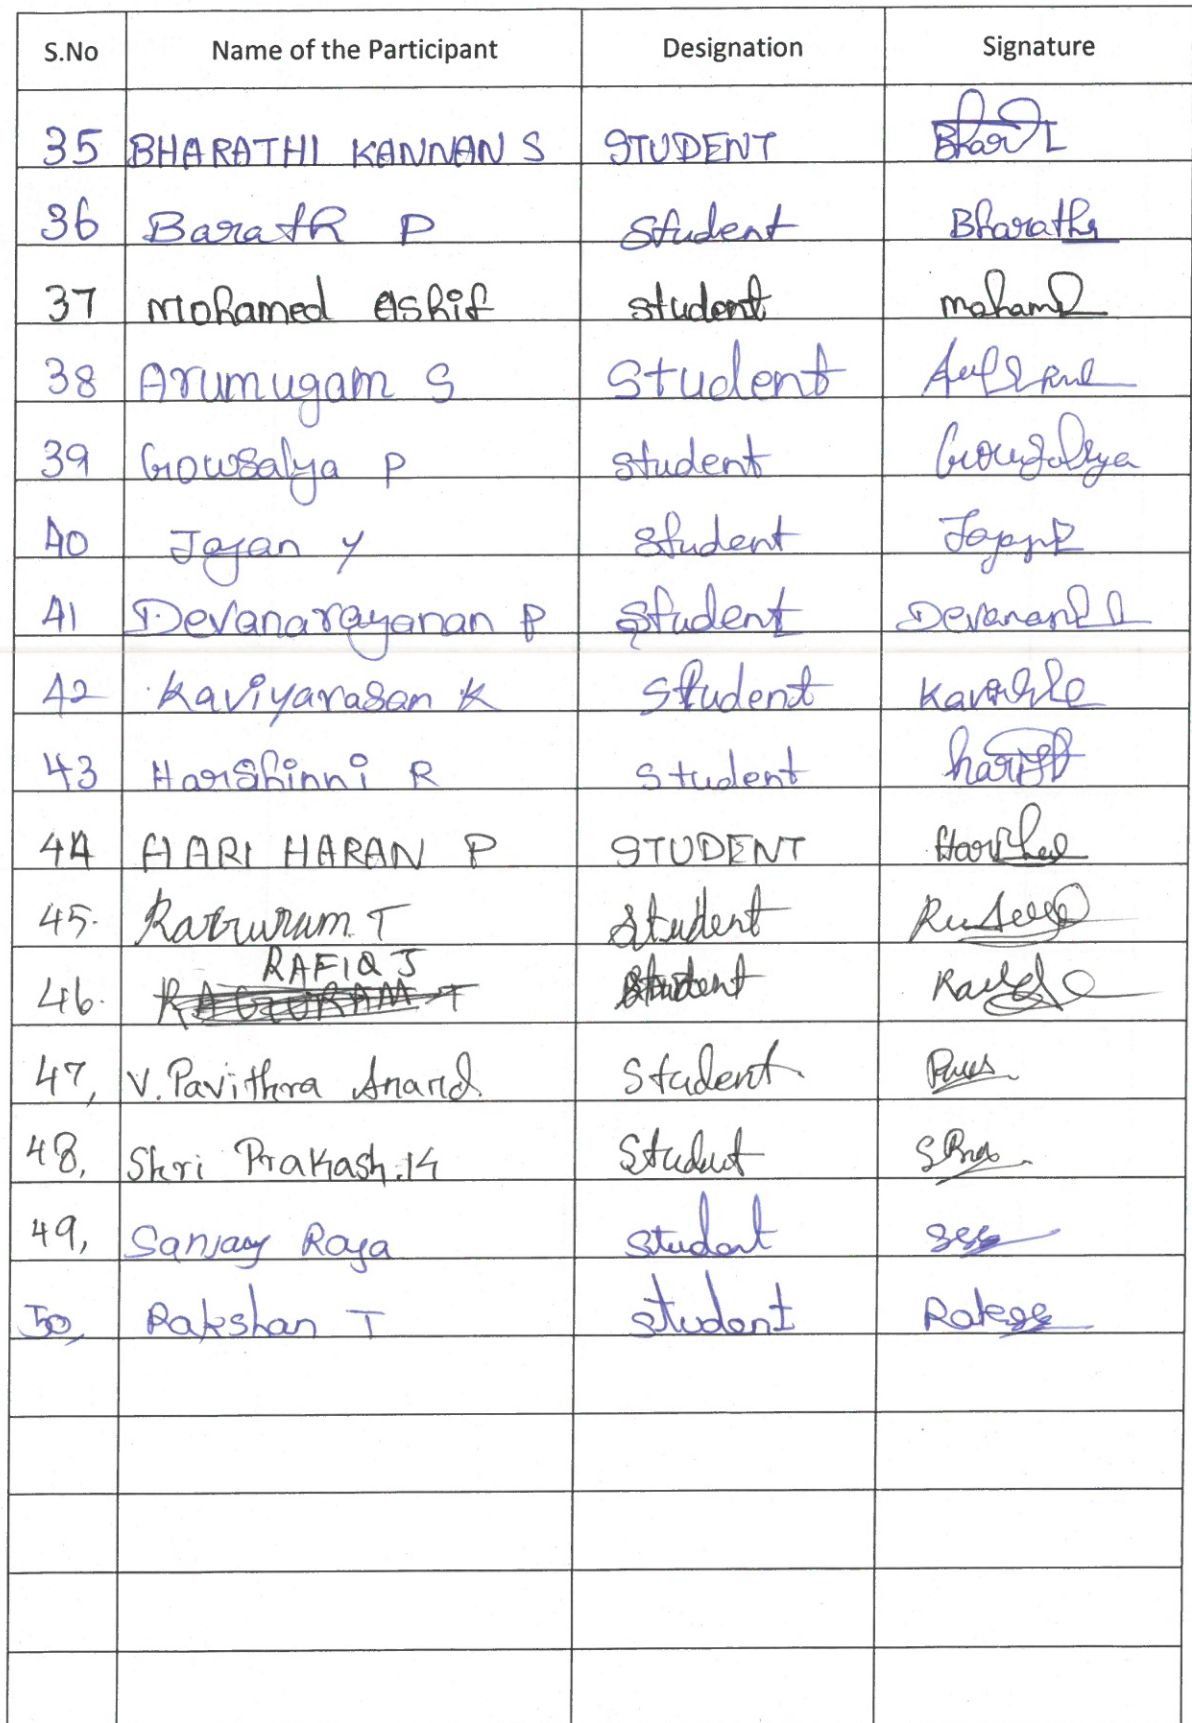 S.No Name of the Participant Designation Signature
35 BHARATHI KANNAN S STUDENT
36 Barath P Student Bharath
37 Mohamed Ashif student mohamd
38 Arumugam S Student
39 Gowsalya P student Gowsalya
40 Jajan Y Student
41 Devanarayanan P Student
42 Kaviyarasan K Student
43 Harshinni R Student
44 HARI HARAN P STUDENT
45. T Student
46. RAFIQ J Student
47, V. Pavithra Anand Student
48, Shri Prakash.K Student
49, Sanjay Raja student
50, Rakshan T student